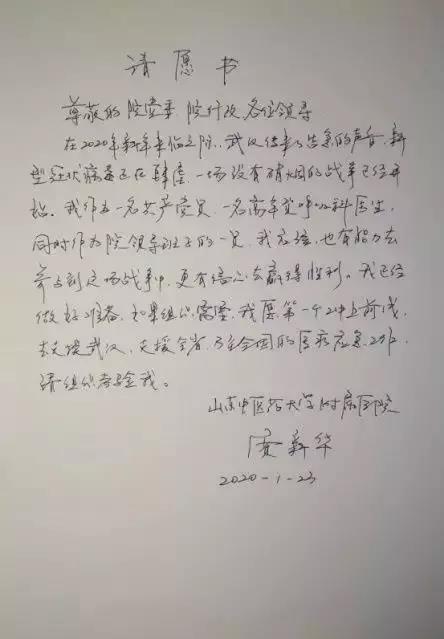 请愿书
尊敬的院党委、院行政各位领导
在2020年新年来临之际,武汉传来了告急的声音,新
型冠状病毒正在肆虐,一场没有硝烟的战争已经开
始。我作为一名共产党员,一名高年资呼吸科医生,
同时作为院领导班子的一员,我应该,也有能力去
参与到这场战争中,更有信心去赢得胜利。我已经
做好准备,如果组织需要,我愿第一个冲上前线,
去支援武汉,支援全省乃至全国的医疗应急工作,
请组织考验我。
山东中医药大学附属医院
贾新华
2020-1-23